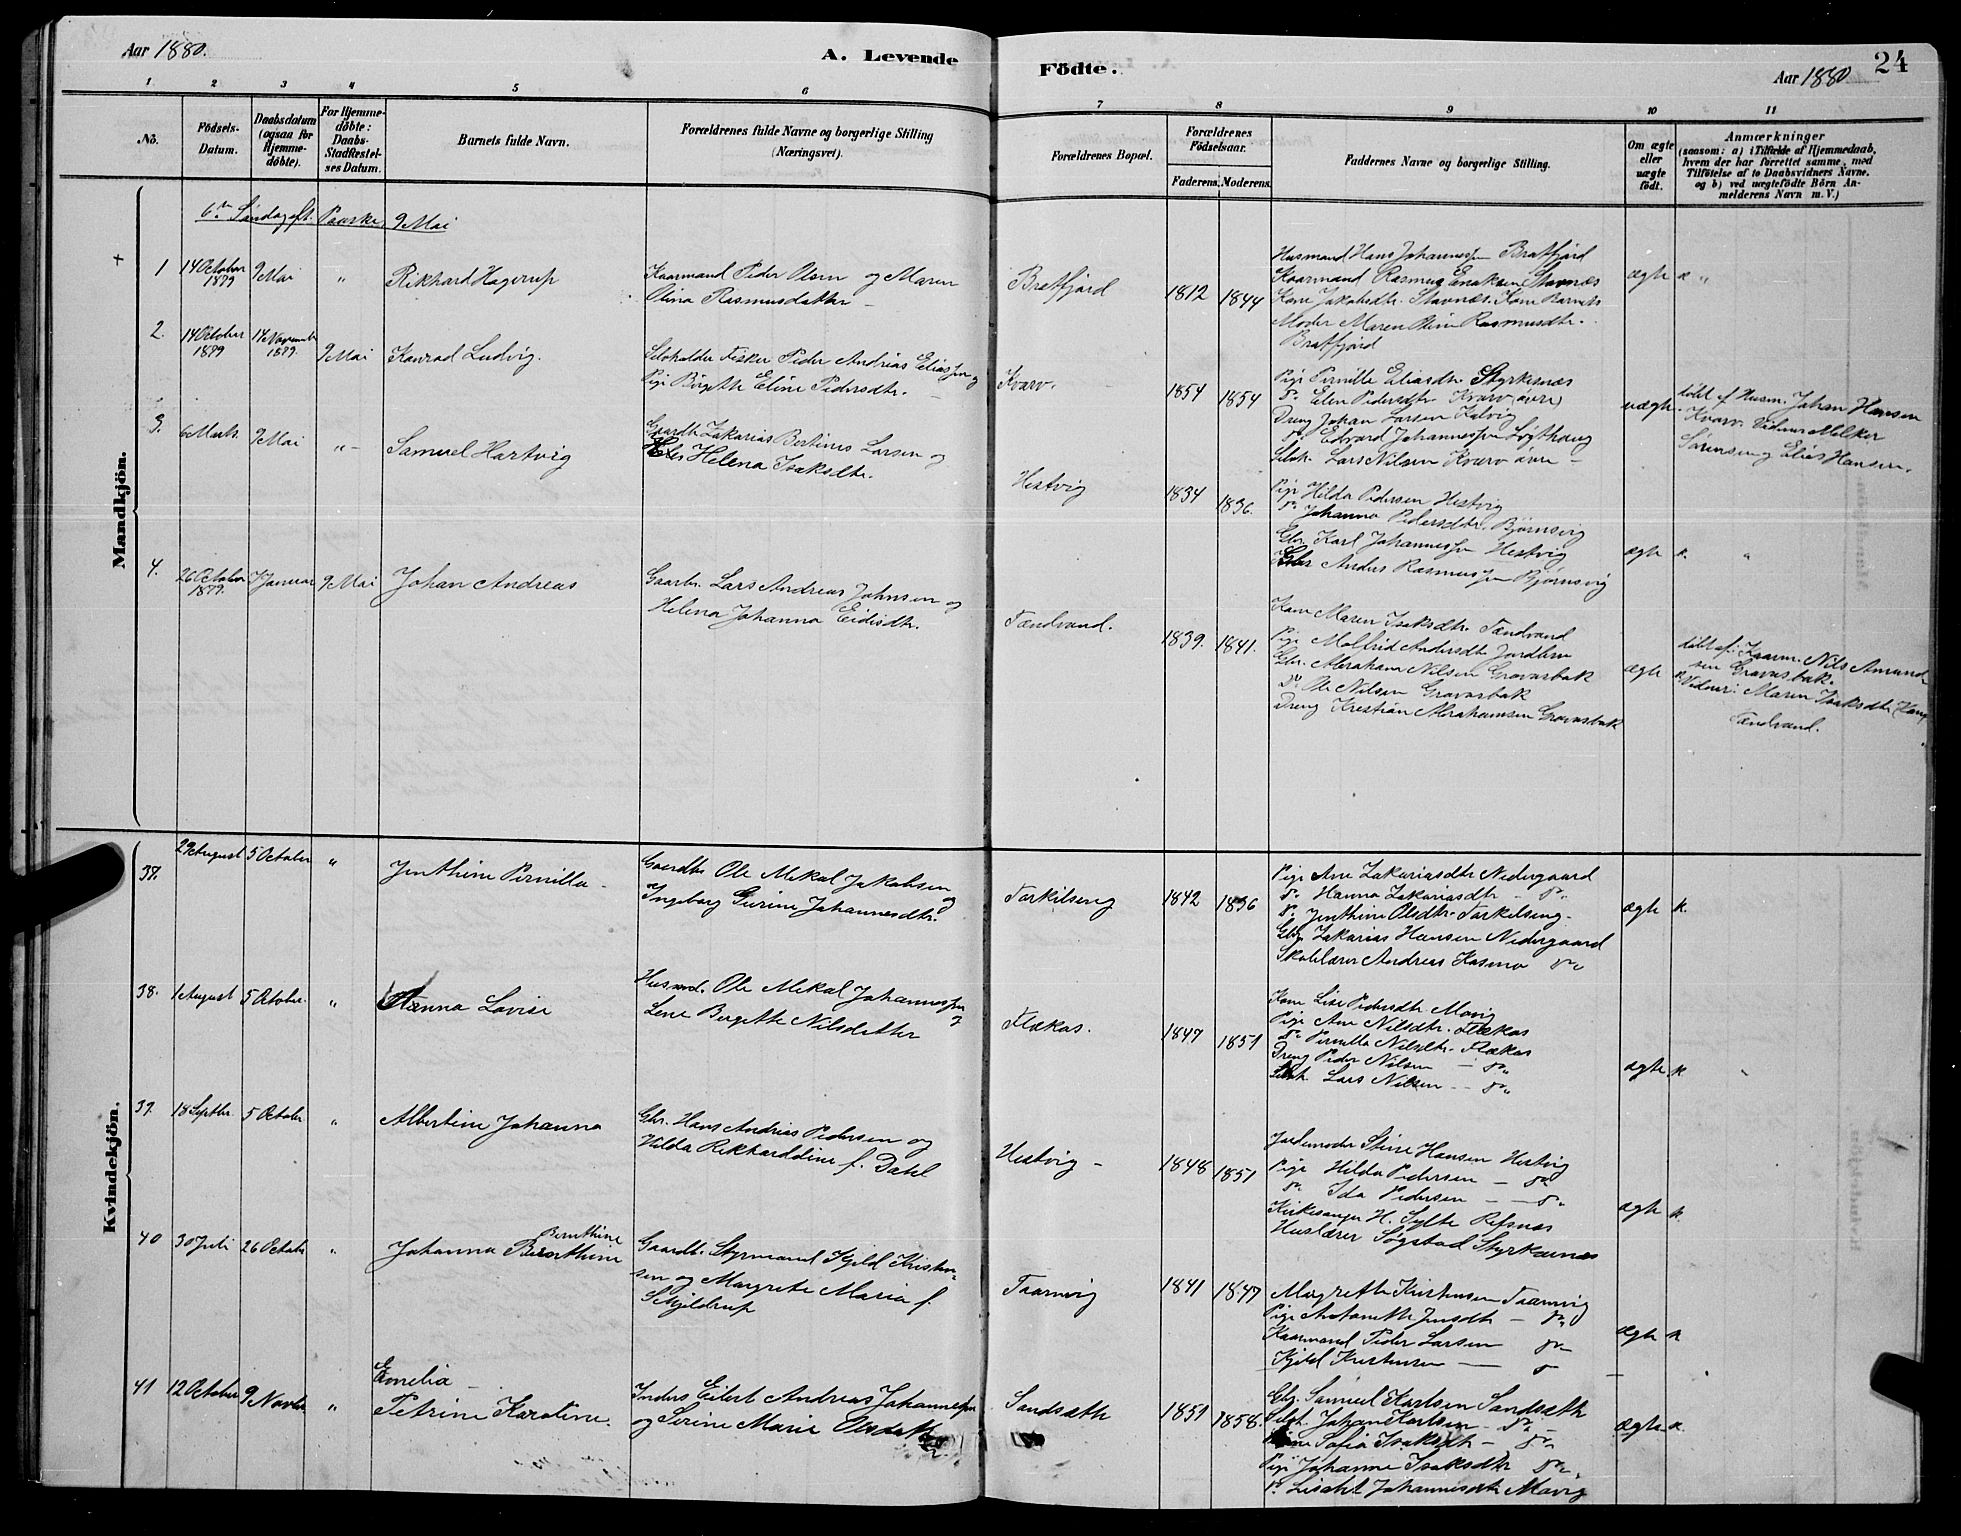 Aar 1880.
A. Levende
Födte.
Aar 1880
24
1 2 3 4 5 6 7 8 9 10 11
No.
Födsels-
Datum.
Daabsdatum
(ogsaa for
Hjemme-
döbte).
For Hjemme-
döbte:
Daabs-
Stadfæstel-
ses Datum.
Barnets fulde Navn.
Forældrenes fulde Navne og borgerlige Stilling
(Næringsvei).
Forældrenes Bopæl.
Forældrenes
Födselsaar.
Faderens. Moderens.
Faddernes Navne og borgerlige Stilling.
Om ægte
eller
uægte
født.
Anmærkninger
(saasom: a) i Tilfælde af Hjemmedaab,
hvem der har forrettet samme, med
Tilføielse af to Daabsvidners Navne.
og b) ved uægtefødte Börn An-
melderens Navn m. V.)
Mandkjön.
6te Søndag eft. Paaske, 9 Mai
1
14 October
1879
9 Mai
"
Rikhard Hagerup
Kaarmand Peder Olsen og Maren
Olina Rasmusdatter
Bratfjord
1812
1844
Husmand Hans Johannessen Bratfjord
Kaarmand Rasmus Enoksen Stavnæs
Kone Jakobsdtr. Stavnæs. Kone Barnets
Moder Maren Olina Rasmusdtr.
Bratfjord
ægte
2.
14 October
1879
14 November
1879.
9 Mai
Konrad Ludvig.
Selvholder Fisker Peder Andreas Eliassen og
Pige Birgitte Eline Pedersdtr.
Kvarv
1854
1854
Pige Pernille Eliasdtr. Styrkesnæs
do Elen Pedersdtr. Kvarv (øvre)
Dreng Johan Larsen Kalvig
do Edvard Johannessen Løgthaug
Selvh. Lars Nilsen Kvarv øvre
uægte
döbt af Husm. Johan Hansen
Kvarv. Vidner Melker
Sørensen og Elias Hansen.
3.
6 Marts
9 Mai
"
Samuel Hartvig
Gaardb. Zakarias Bertines Larsen og
Helena Isaksdtr.
Hestvig
1834
1836.
Pige Hilda Pedersen Hestvig
do Johanna Pedersdtr. Bjørnsvig
Gbr. Karl Johannessen Hestvig
Anders Rasmussen Bjørnsvig
ægte
"
4.
26 October
1879.
7 Januar
9 Mai
Johan Andreas
Gaardbr. Lars Andreas Johnsen og
Helena Johanna Eidisdtr.
Tendvand.
1839.
1841.
Kone Maren Isaksdtr. Tendvand
Pige Malfrid Andersdtr
Gbr. Abraham Nilsen Gravarbak
do Ole Nilsen Gravarbak
Dreng Kristian Abrahamsen Gravarbak
ægte
döbt af: Kaarm. Nils Amund-
sen Gravarbak.
Vidner: Maren Isaksdtr (Kone
Tendvand.
Kvindekjön.
37.
29 August
5 October
"
Jenthine Pernilla
Gaardb. Ole Mekal Jakobsen
og
Ingeborg Gurine Johannesdtr.
Torkilseng
1842
1836
Pige Ane Zakariasdtr Nedergaard
do Hanna Zakariasdtr do
do Jenthine Olsdtr Torkilseng
Gbr Zakarias Hansen Nedergaard
Skolelærer Andreas Kosmo do
ægte k.
38.
1 August
5 October.
"
Hanna Lovise
Husmd. Ole Mekal Johannessen
og
Lene Bergitte Nilsdatter
Flekas.
1847
1851
Kone Lise Pedersdtr Mavig
Pige Ane Nilsdtr. Flekas
do Pernilla Nilsdtr. Flekas
Dreng Peder Nilsen do
Selvh. Lars Nilsen do
ægte k
39.
18 Septbr.
5 October
"
Albertine Johanna
Gbr. Hans Andreas Pedersen og
Hilda Rikkarddine f. Dahl
Hestvig
1848
1851
Jordemoder Stine Hansen Hestvig
Pige Hilda Pedersen do
do Ida Pedersen do
Kirkesanger H. Sylte Refsnæs
Huslærer Søgstad Styrkesnæs
ægte k.
40
30 Juli
26 Octobr
"
Bernthine
Johanna Bernthine
Gaardb. Styrmand Kjeld Kristen-
sen og Margrete Maria f.
Schjeldrup
Taarnvig
1841
1847
Margrethe Kristensen Taarnvig
Pige Antonette Jensdtr do
Kaarmand Peder Larsen do
Kjeld Kristensen do
ægte k
41
12 October
9 Novbr
"
Emelia
Petrine Karoline.
Inders Eilert Andreas Johannessen
og Serine Marie Olsdatt
Sandsæth
1851
1858.
Gbr. Samuel Karlsen Sandsæth
Selvh. Johan Karlsen do
Kone Sofia Isaksdtr do
Pige Johanne Isaksdtr do
do Lisabet Johannesdtr Mavig
ægte k.